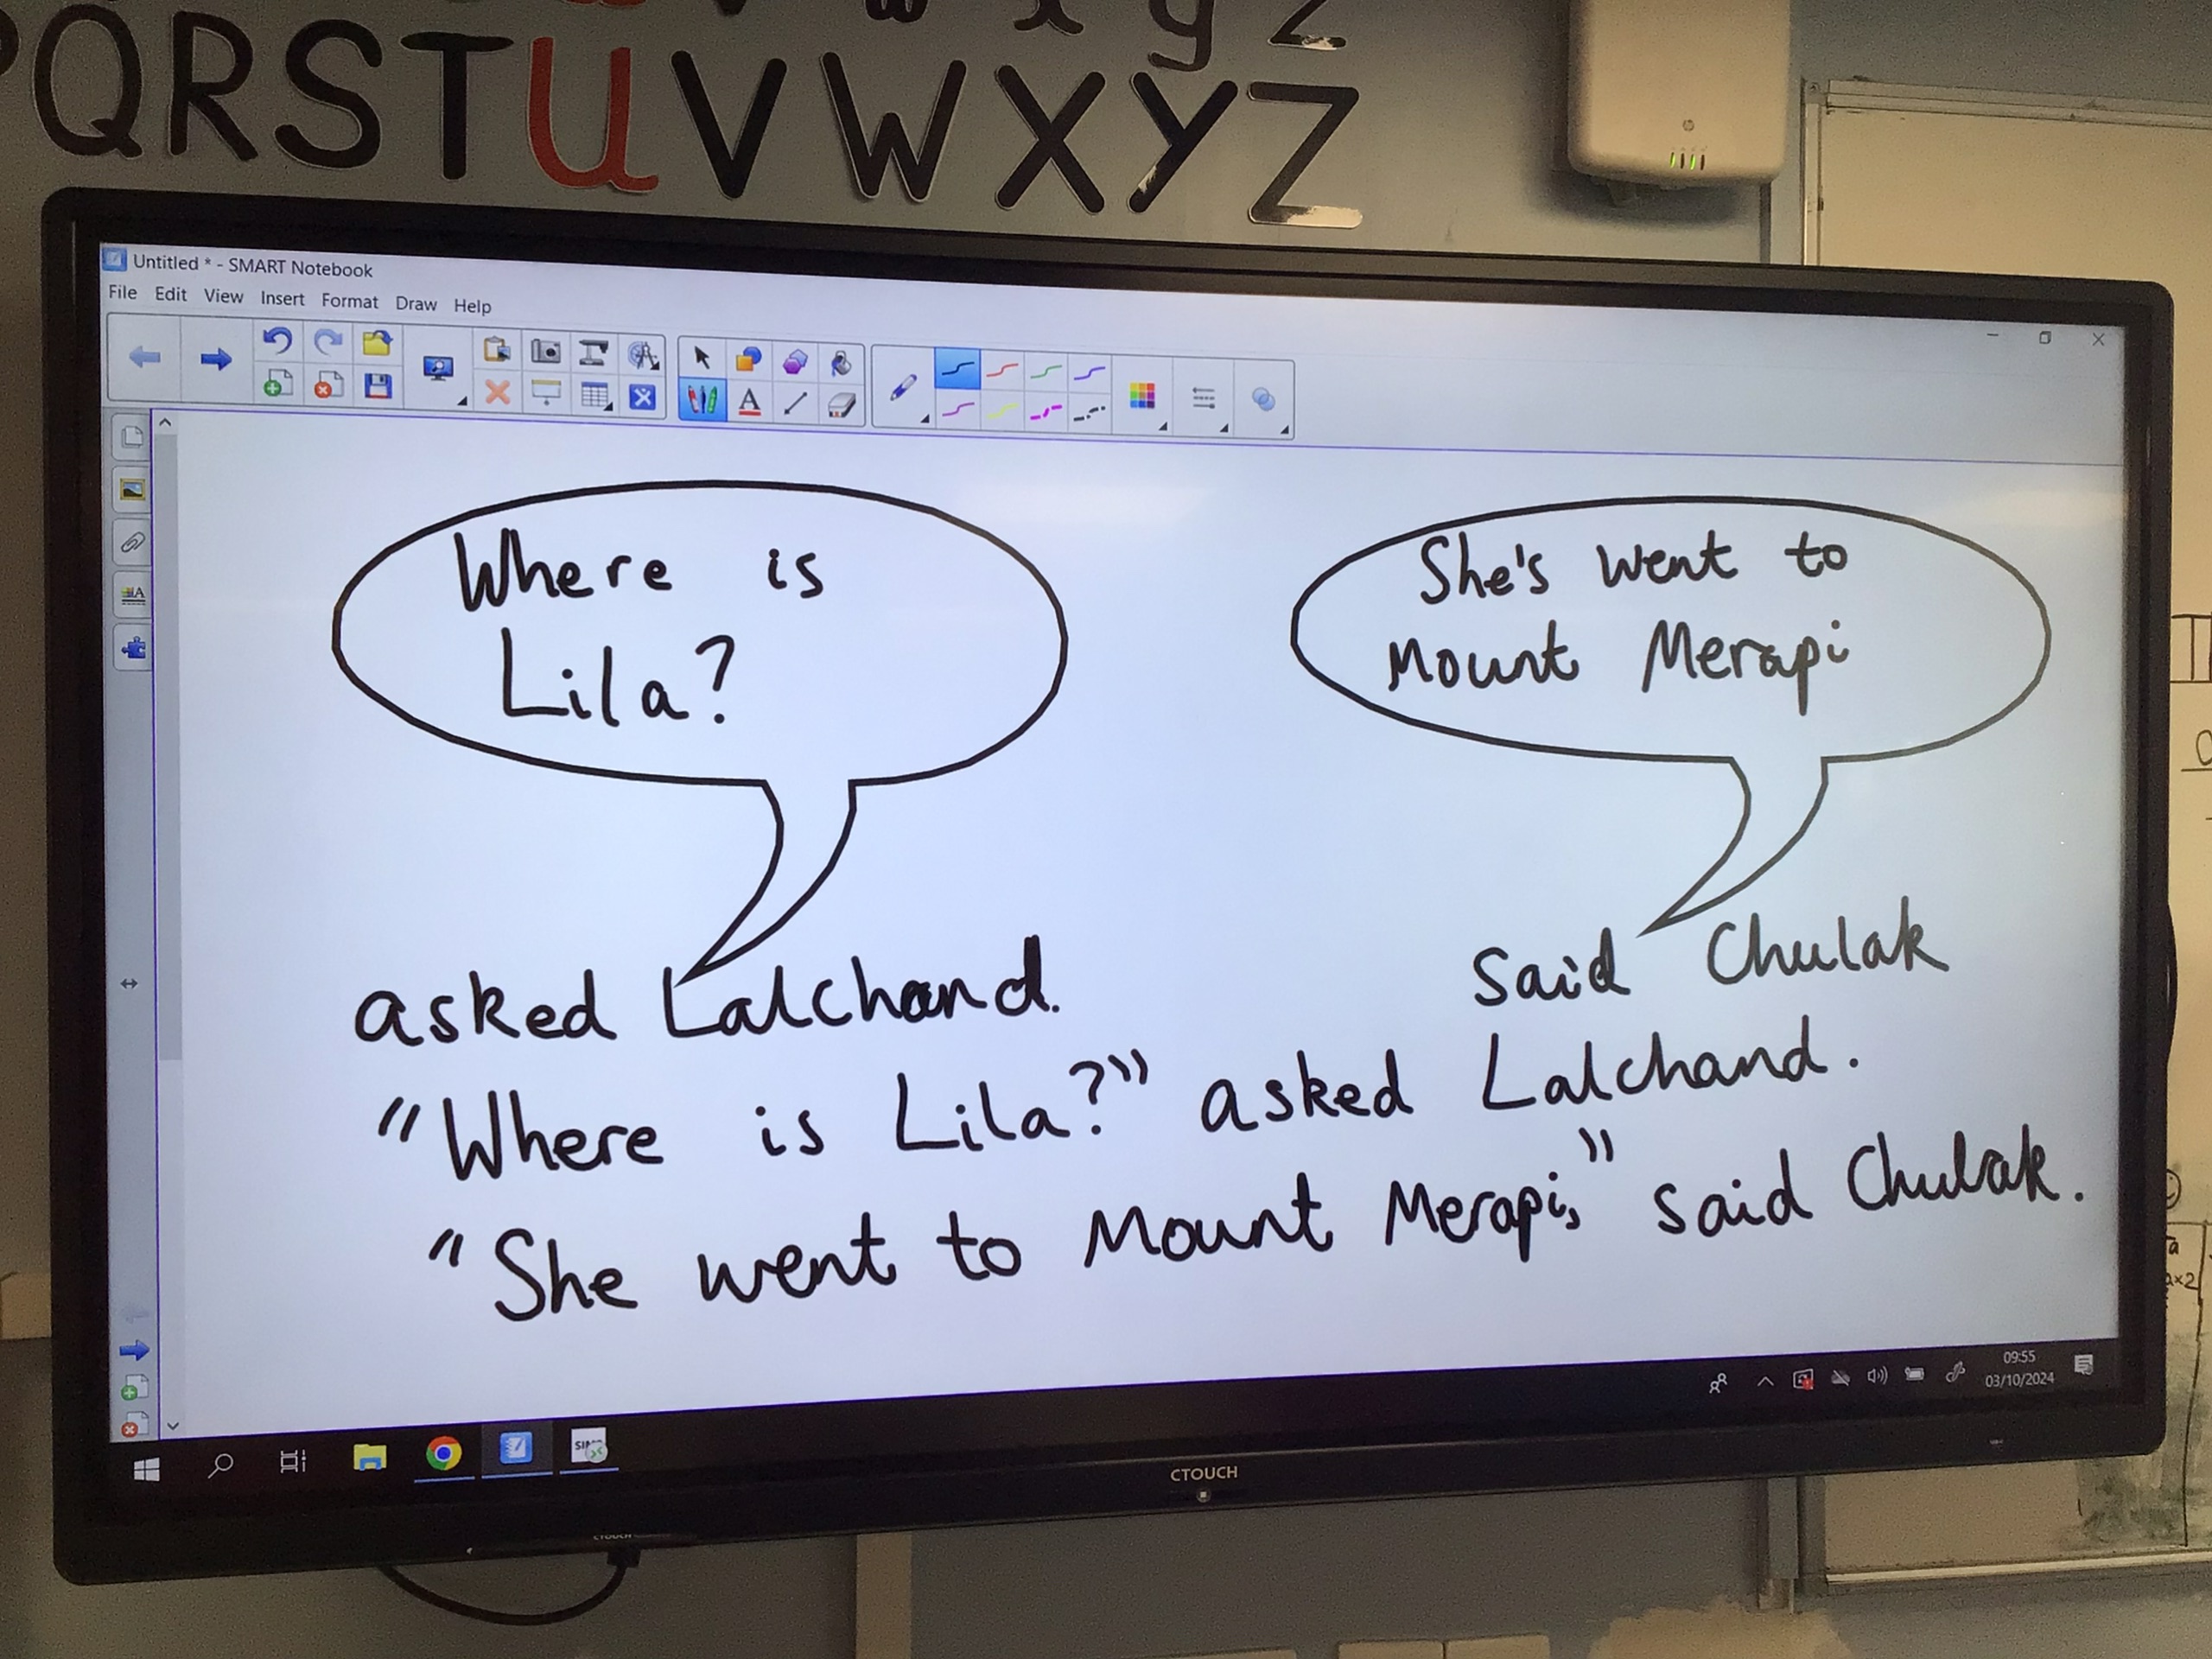 w x y z
QRSTUVWXYZ
Untitled * - SMART Notebook
File Edit View Insert Format Draw Help
Where is
Lila?
She's went to
Mount Merapi
asked Lalchand.
said Chulak
"Where is Lila?" asked Lalchand.
"She went to Mount Merapi," said Chulak.
09:55
03/10/2024
CTOUCH